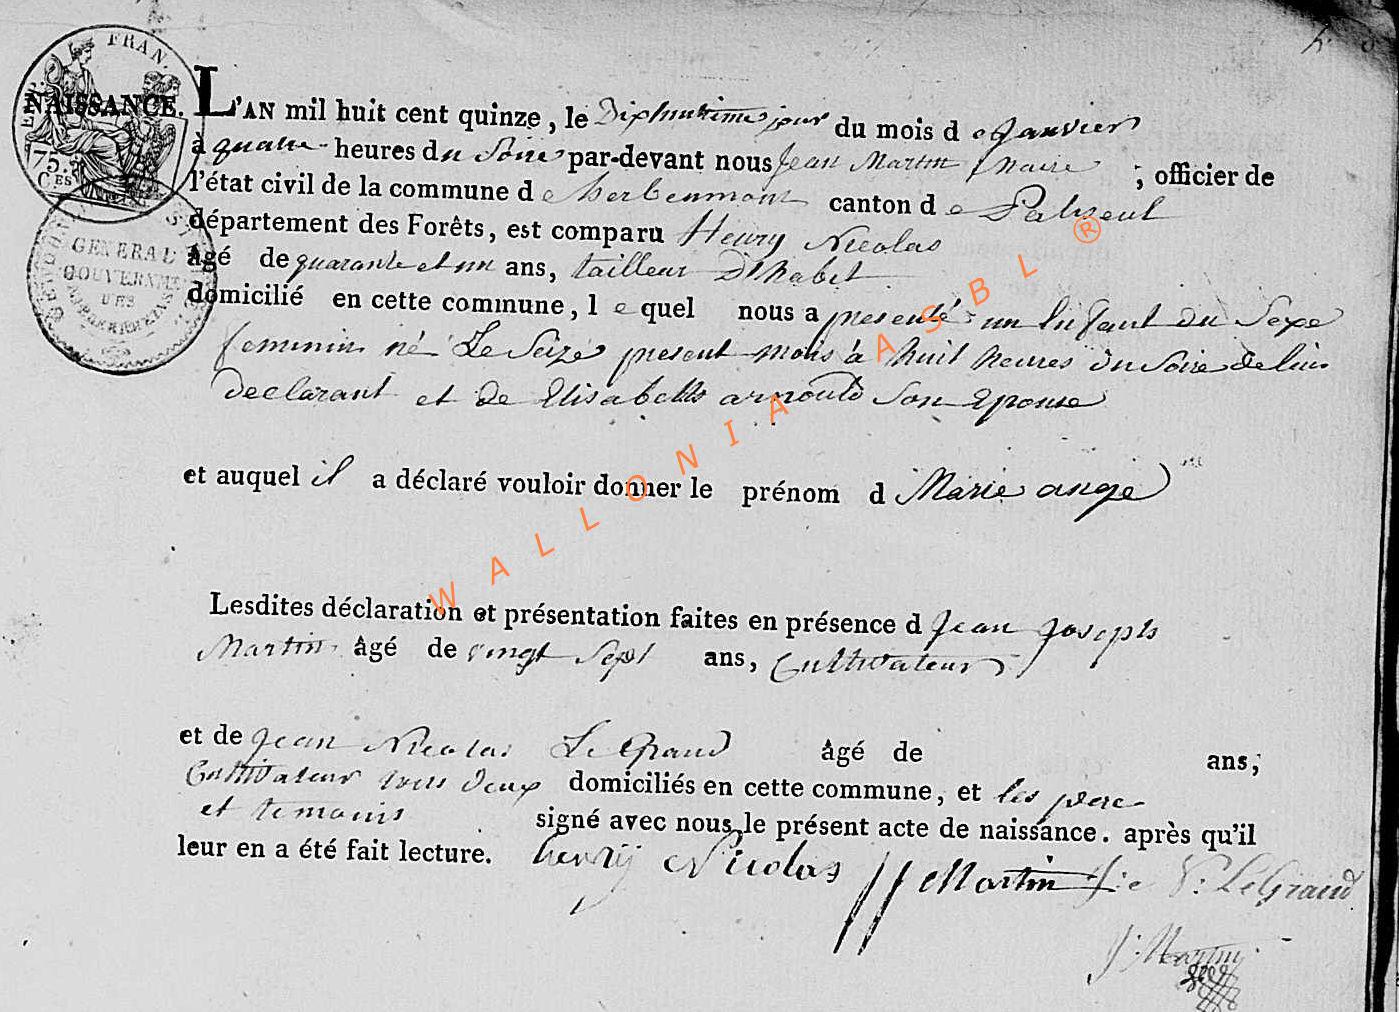 EMP. FRAN.
75.
C.ES
GENERAL
GOUVERNEM
NAISSANCE. L'AN mil huit cent quinze, le Dixhuitieme jour du mois de Janvier
à quatre heures du Soire par-devant nous Jean Martin Maire ; officier de
l'état civil de la commune de herbeumont canton de Paliseul
département des Forêts, est comparu Henry Nicolas
âgé de quarante et un ans, tailleur D'habit
domicilié en cette commune, lequel nous a presenté un Enfant du Sexe
feminin né Le Seize present mois à huit heures du Soire de lui
declarant et de Elisabeth arnould Son Epouse
et auquel il a déclaré vouloir donner le prénom d Marie ange
Lesdites déclaration et présentation faites en présence d Jean Joseph
Martin âgé de vingt Sept ans, Cultivateur
et de Jean Nicolas Le Grand âgé de ans,
Cultivateur tous deux domiciliés en cette commune, et les pere
et temoins signé avec nous le présent acte de naissance. après qu'il
leur en a été fait lecture. henry Nicolas JJ Martin LeGrand
J: Martin
WALLONIA ASBL ®